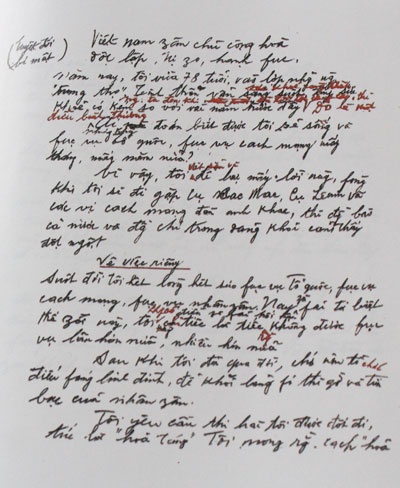 (Tuyệt đối
bí mật)
Việt nam zân chủ cộng hoà
độc lập, tự zo, hạnh fúc.
Năm nay, tôi vừa 78 tuổi, vào lớp những
"trung thọ". Tinh thần vẫn
khoẻ có kém so với vài năm trước đây. Đó là một
điều bình thường
biết được tôi sống và
fục vụ tổ quốc, fục vụ cách mạng mấy
tháng, mấy năm nữa?
Vì vậy, tôi để lại mấy lời này, fòng
khi tôi sẽ đi gặp cụ Cac Mac, Cụ Lenin và
các vị cách mạng đàn anh khác, thì đồng bào
cả nước và đ chí trong đảng khỏi cảm thấy
đột ngột.
Về việc riêng
Suốt đời tôi hết lòng hết sức fục vụ Tổ quốc, fục vụ
cách mạng, fục vụ nhân zân. Nay fải từ biệt
thế zới này, tôi tiếc là tiếc không được fục
vụ lâu hơn nữa, nhiều hơn nữa
Sau khi tôi đã qua đời, chớ nên tổ chức
điếu fúng linh đình, để khỏi lãng fí thì zờ và tiền
bạc của nhân zân.
Tôi yêu cầu thi hài tôi được đốt đi,
tức là "hoả táng". Tôi mong rằng cách "hoả